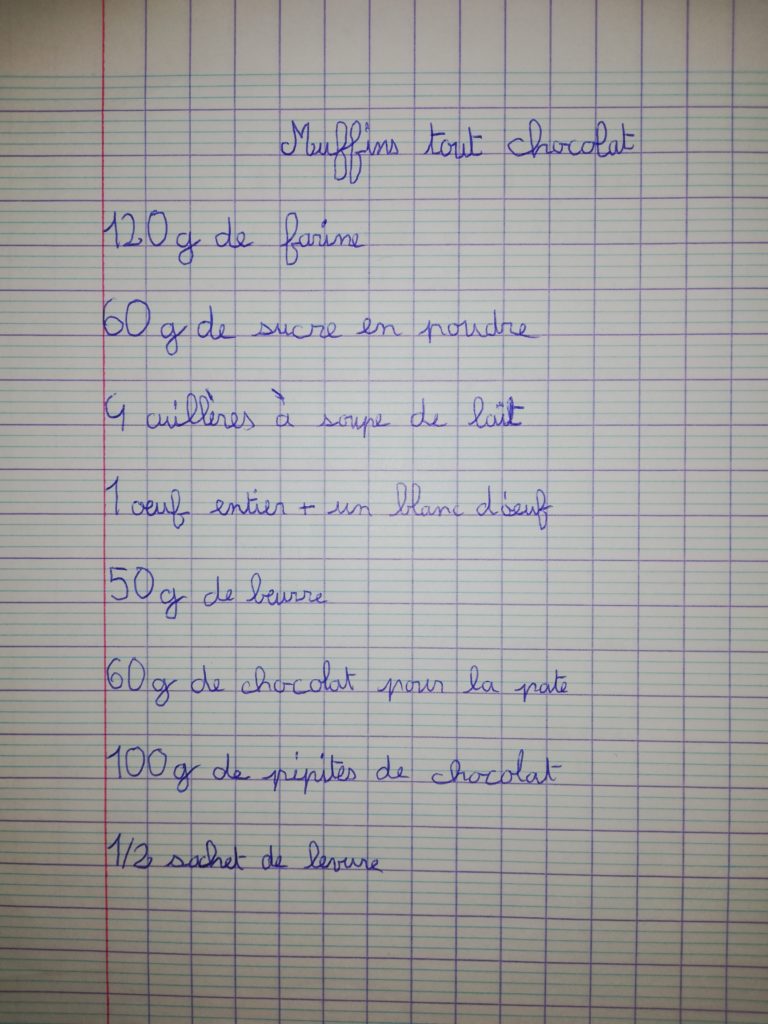 Muffins tout chocolat
120g de farine
60g de sucre en poudre
4 cuillères à soupe de lait
1 oeuf entier + un blanc d'oeuf
50g de beurre
60g de chocolat pour la pate
100g de pépites de chocolat
1/2 sachet de levure